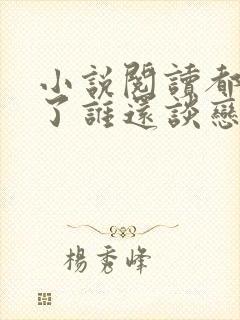 小說閱讀都
了誰還談戀
楊秀峰